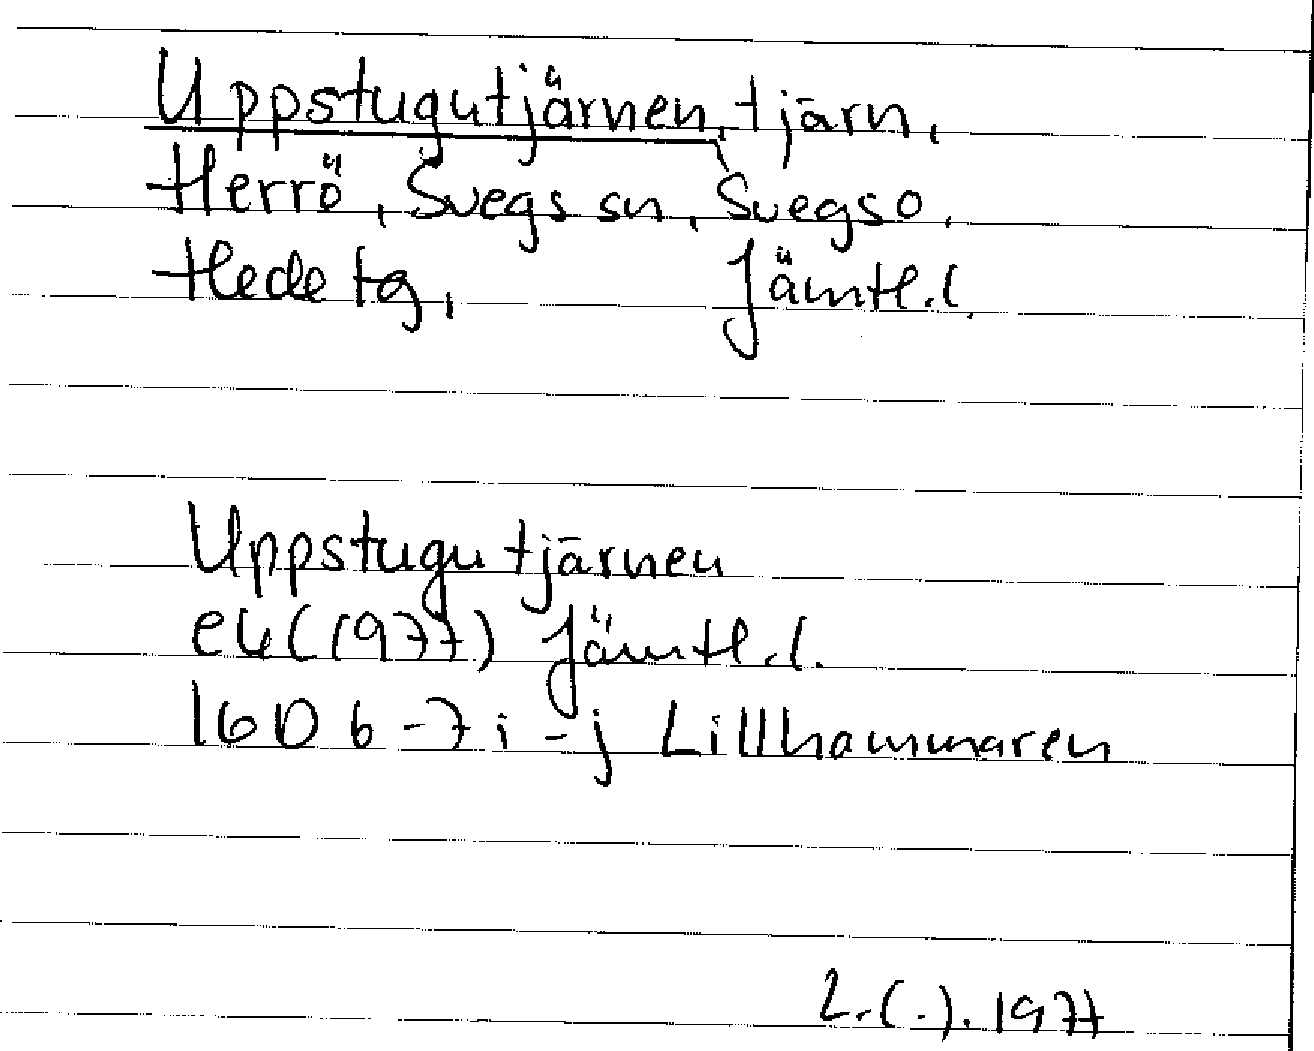 Uppstugutjärnen, tjärn,
Herrö, Svegs sn, Svegs o,
Hede tg, Jämtl.l.
Uppstugutjärnen
ek (1977) Jämtl.l.
16D 6-7 i-j Lillhammaren
L.(.). 1977